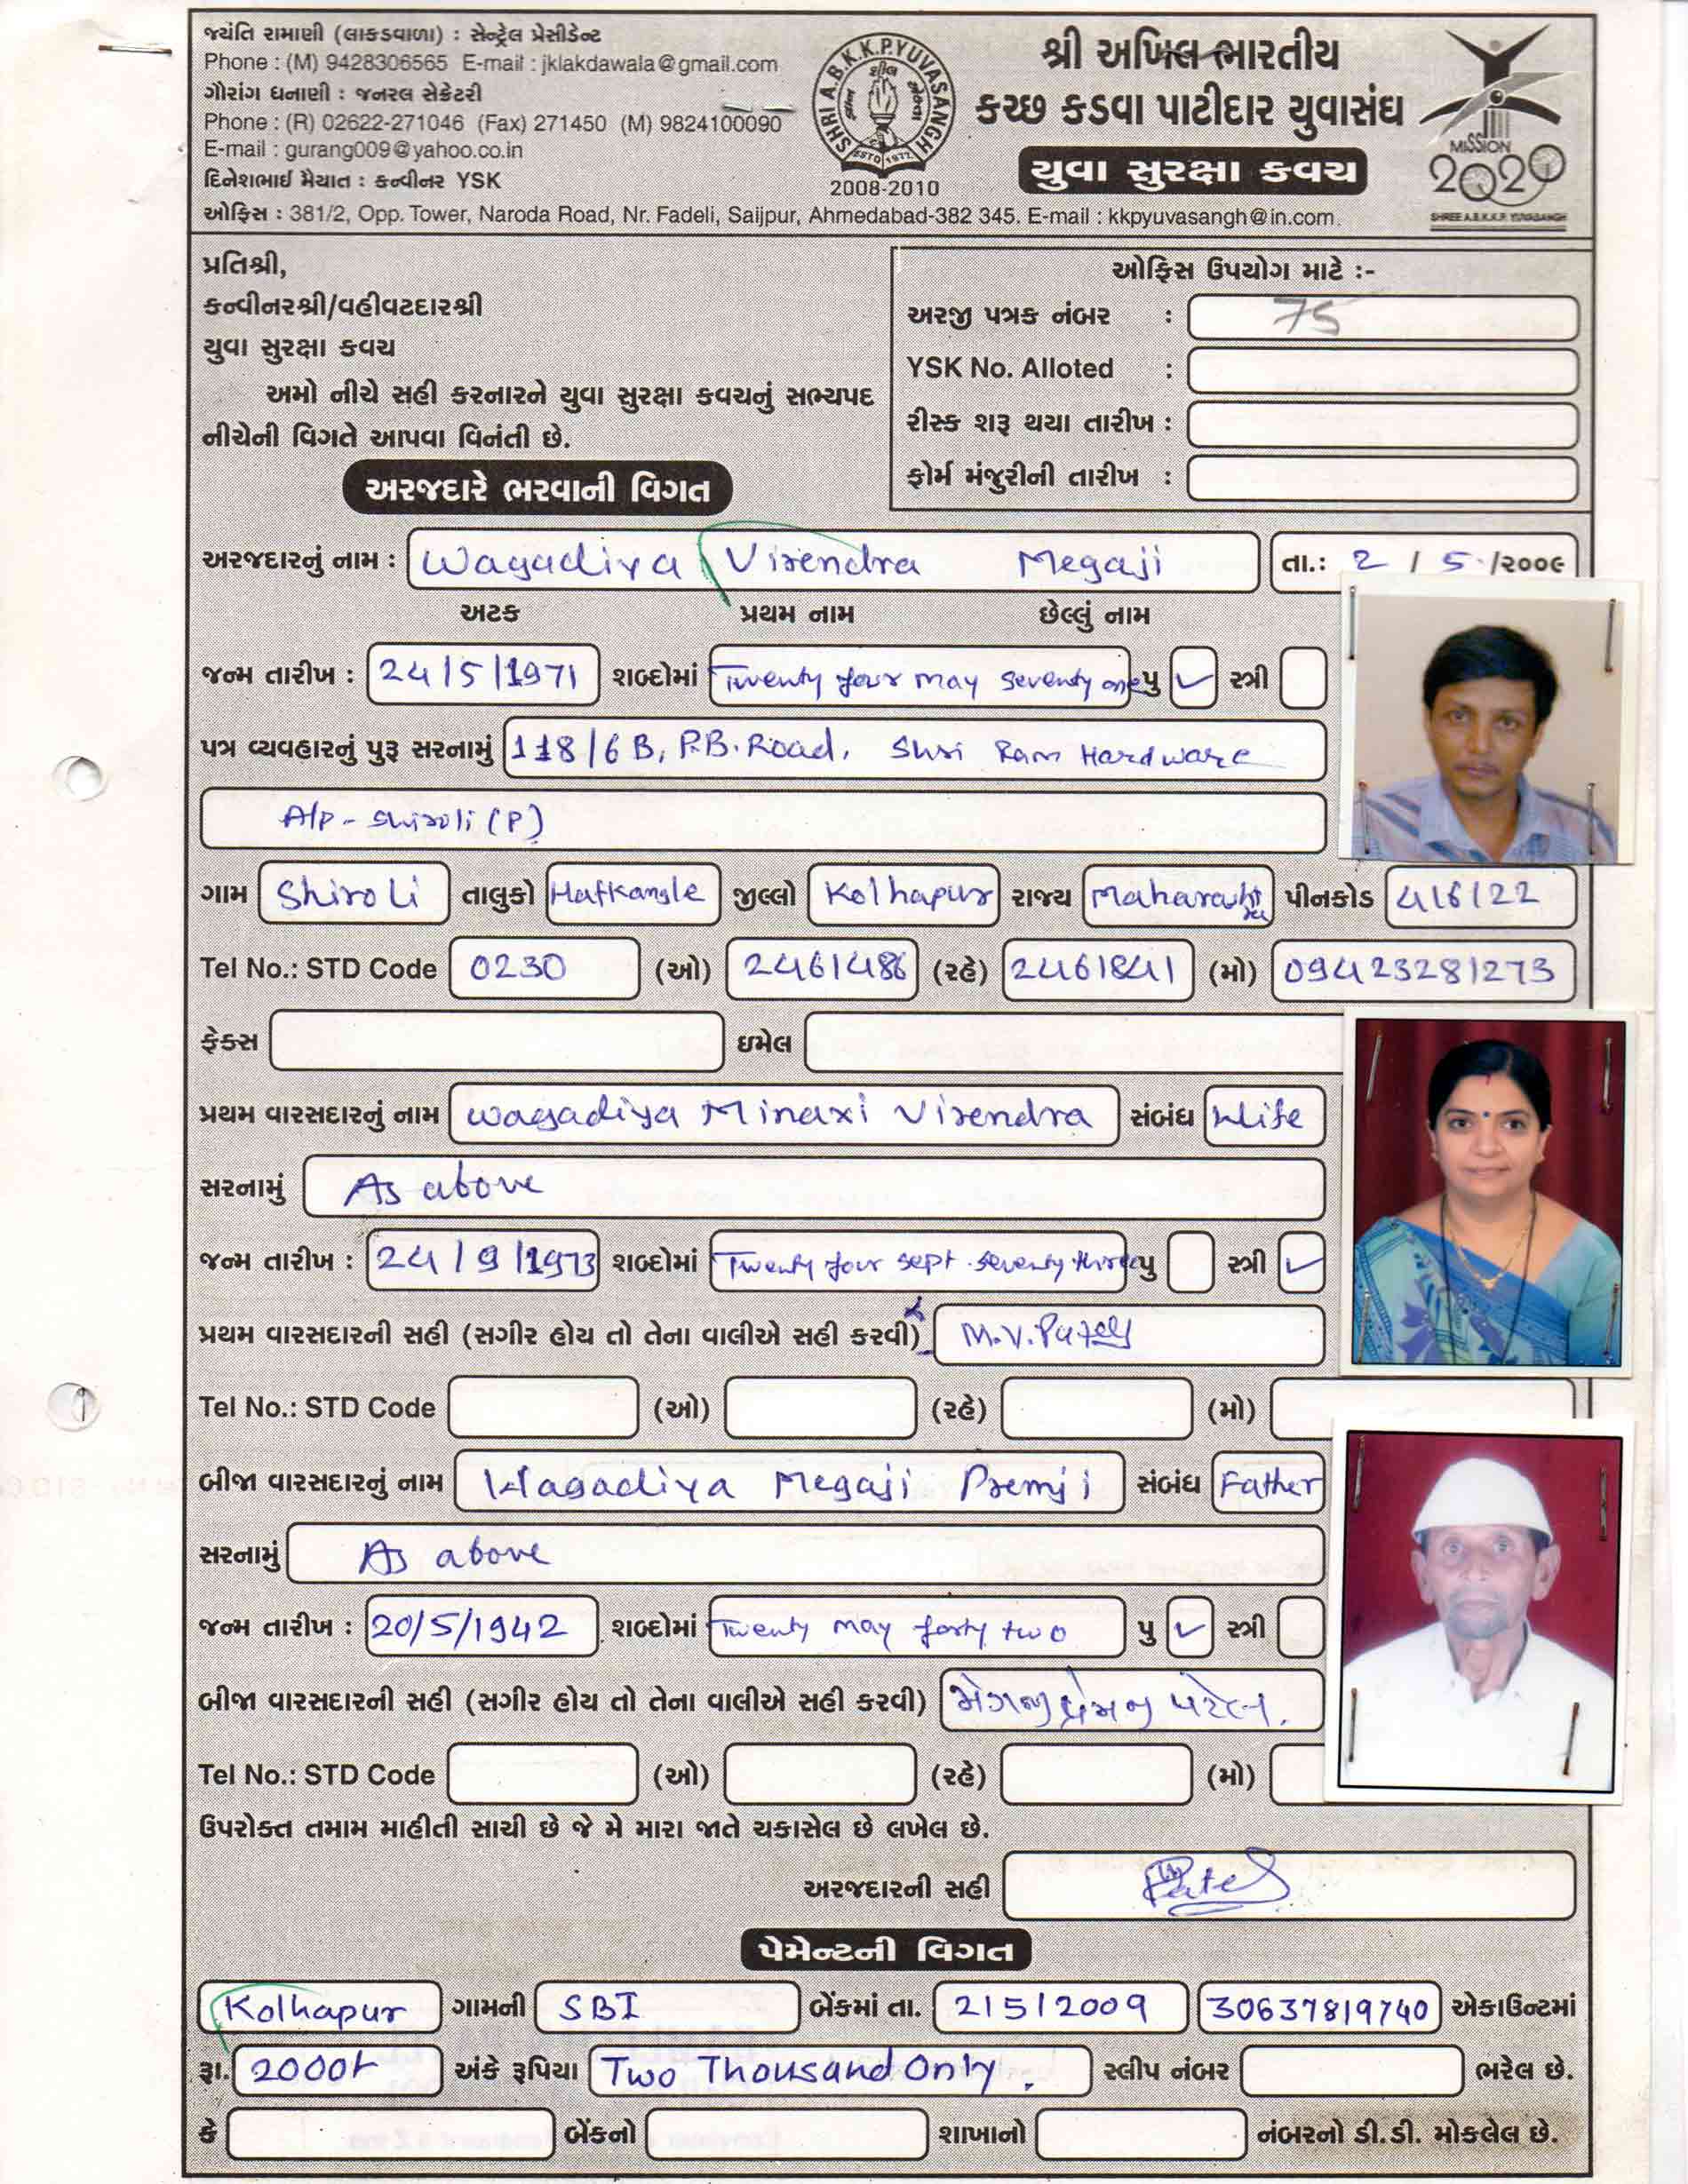 જયંતિ રામાણી (લાકડાવાળા) : સેન્ટ્રેલ પ્રેસીડેન્ટ
Phone : (M) 9428306565 E-mail : jklakdawala@gmail.com
ગૌરાંગ ધનાણી : જનરલ સેક્રેટરી
Phone : (R) 02622-271046 (Fax) 271450 (M) 9824100090
E-mail : gurang009@yahoo.co.in
દિનેશભાઈ મૈયાત : કન્વીનર YSK
SHRI A.B.K.K.P.YUVASANGH
ESTD 1972
2008-2010
શ્રી અખિલ ભારતીય
કચ્છ કડવા પાટીદાર યુવાસંઘ
યુવા સુરક્ષા કવચ
MISSION
2020
SHREE A.B.K.K.P. YUVASANGH
ઓફિસ : 381/2, Opp. Tower, Naroda Road, Nr. Fadeli, Saijpur, Ahmedabad-382 345. E-mail : kkpyuvasangh@in.com.
પ્રતિશ્રી,
કન્વીનરશ્રી/વહીવટદારશ્રી
યુવા સુરક્ષા કવચ
અમો નીચે સહી કરનારને યુવા સુરક્ષા કવચનું સભ્યપદ
નીચેની વિગતે આપવા વિનંતી છે.
ઓફિસ ઉપયોગ માટે :-
અરજી પત્રક નંબર : 75
YSK No. Alloted :
રીસ્ક શરૂ થયા તારીખ :
ફોર્મ મંજુરીની તારીખ :
અરજદારે ભરવાની વિગત
અરજદારનું નામ : Wagadiya Virendra Megaji તા.: 2 / 5 /૨૦૦૯
અટક પ્રથમ નામ છેલ્લું નામ
જન્મ તારીખ : 24/5/1971 શબ્દોમાં Twenty four may seventy one પુ ✓ સ્ત્રી
પત્ર વ્યવહારનું પુરૂ સરનામું 118/6 B, P.B. Road, Shri Ram Hardware
A/p - Shiroli (P)
ગામ Shiroli તાલુકો Hatkangle જીલ્લો Kolhapur રાજ્ય Maharashtra પીનકોડ 416122
Tel No.: STD Code 0230 (ઓ) 2461486 (રહે) 2461841 (મો) 09423281273
ફેક્સ ઇમેલ
પ્રથમ વારસદારનું નામ Wagadiya Minaxi Virendra સંબંધ Wife
સરનામું As above
જન્મ તારીખ : 24/9/1973 શબ્દોમાં Twenty four sept. seventy three પુ સ્ત્રી ✓
પ્રથમ વારસદારની સહી (સગીર હોય તો તેના વાલીએ સહી કરવી) M.V.Patel
Tel No.: STD Code (ઓ) (રહે) (મો)
બીજા વારસદારનું નામ Wagadiya Megaji Premji સંબંધ Father
સરનામું As above
જન્મ તારીખ : 20/5/1942 શબ્દોમાં Twenty may forty two પુ ✓ સ્ત્રી
બીજા વારસદારની સહી (સગીર હોય તો તેના વાલીએ સહી કરવી) મેગજી પ્રેમજી પટેલ.
Tel No.: STD Code (ઓ) (રહે) (મો)
ઉપરોક્ત તમામ માહીતી સાચી છે જે મે મારા જાતે ચકાસેલ છે લખેલ છે.
અરજદારની સહી Patel
પેમેન્ટની વિગત
Kolhapur ગામની SBI બેંકમાં તા. 2/5/2009 30637819740 એકાઉન્ટમાં
રૂા. 2000/- અંકે રૂપિયા Two Thousand Only. સ્લીપ નંબર ભરેલ છે.
કે બેંકનો શાખાનો નંબરનો ડી.ડી. મોકલેલ છે.